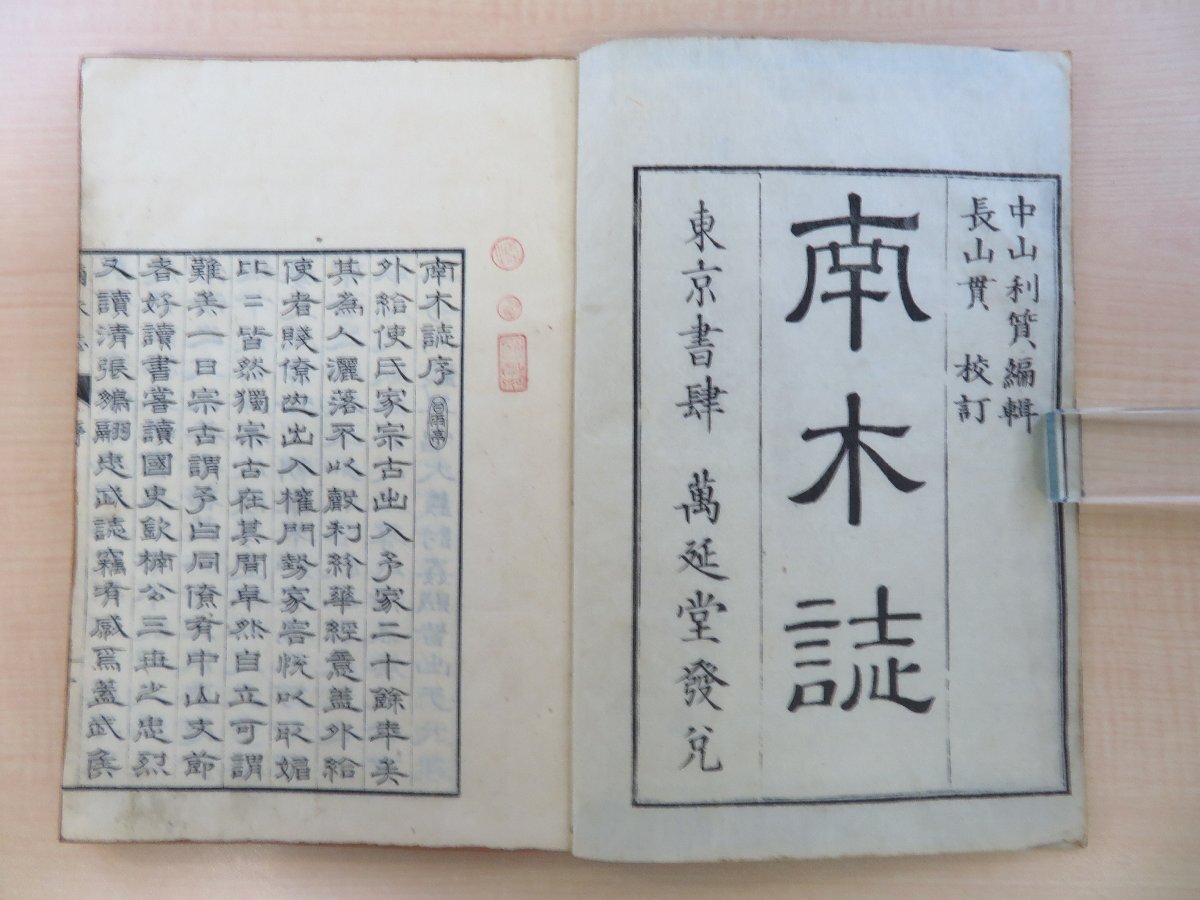 中山利質編輯
長山貫 校訂
南木誌
東京書肆 萬延堂發兌
南木誌序
外給使氏家宗古出入予家二十餘年矣
其為人灑落不以聲利紛華經意蓋外給
使者賤僚也出入權門勢家容悅以取媚
比二皆然獨宗古在其間卓然自立可謂
難矣一日宗古謂予曰同僚有中山文節
者好讀書嘗讀國史欽楠公三世之忠烈
又讀清張鵬翮忠武誌竊有感焉蓋武矦